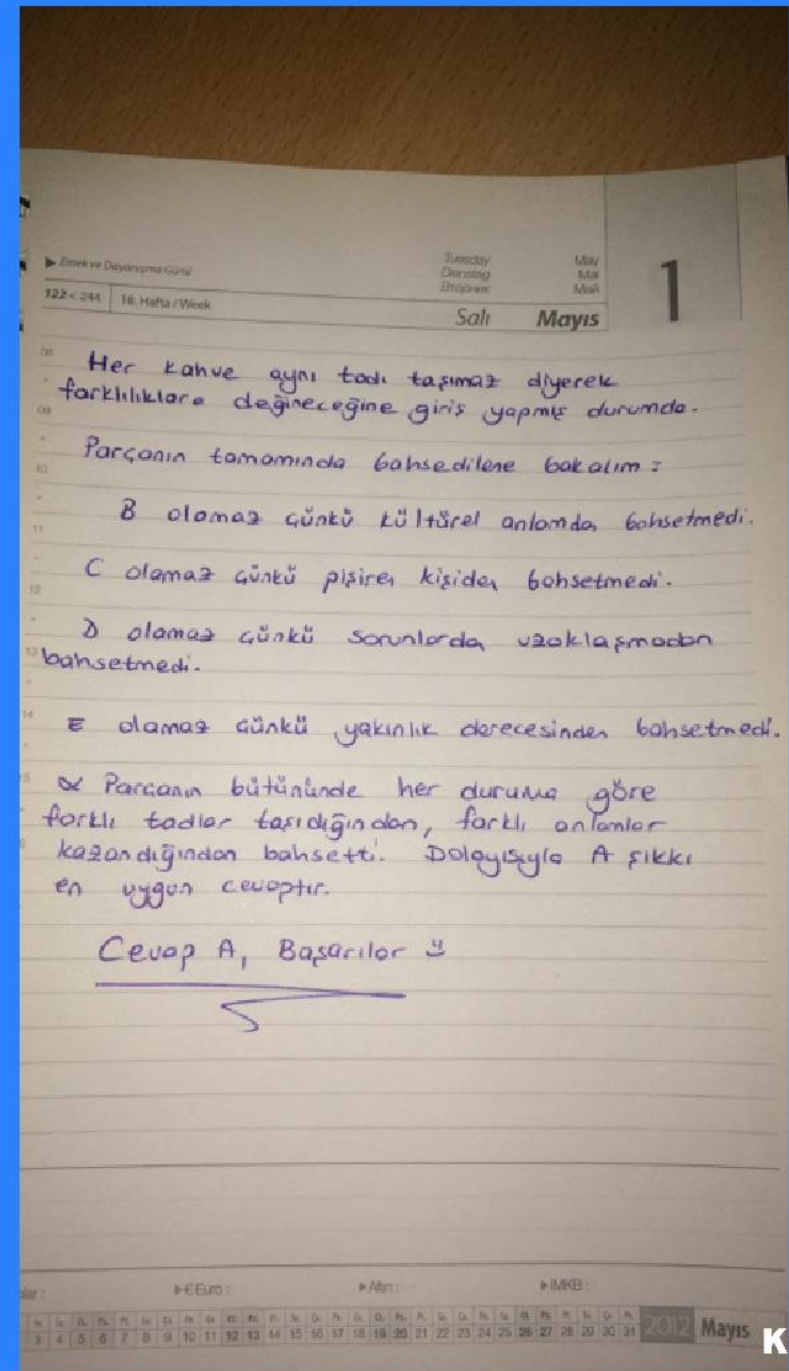 Emek ve Dayanışma Günü
Tuesday May
Dienstag Mai
122 < 244 18. Hafta / Week
Salı Mayıs
1
Her kahve aynı tadı taşımaz diyerek
farklılıklara değineceğine giriş yapmış durumda.
Parçanın tamamında bahsedilene bakalım :
B olamaz çünkü kültürel anlamda bahsetmedi.
C olamaz çünkü pişiren kişiden bahsetmedi.
D olamaz çünkü sorunlarda uzaklaşmadan
bahsetmedi.
E olamaz çünkü yakınlık derecesinden bahsetmedi.
Parçanın bütününde her duruma göre
farklı tadlar taşıdığından, farklı anlamlar
kazandığından bahsetti. Dolayısıyla A şıkkı
en uygun cevaptır.
Cevap A, Başarılar
€ Euro : Altın : IMKB :
3 4 5 6 7 8 9 10 11 12 13 14 15 16 17 18 19 20 21 22 23 24 25 26 27 28 29 30 31 2012 Mayıs
K